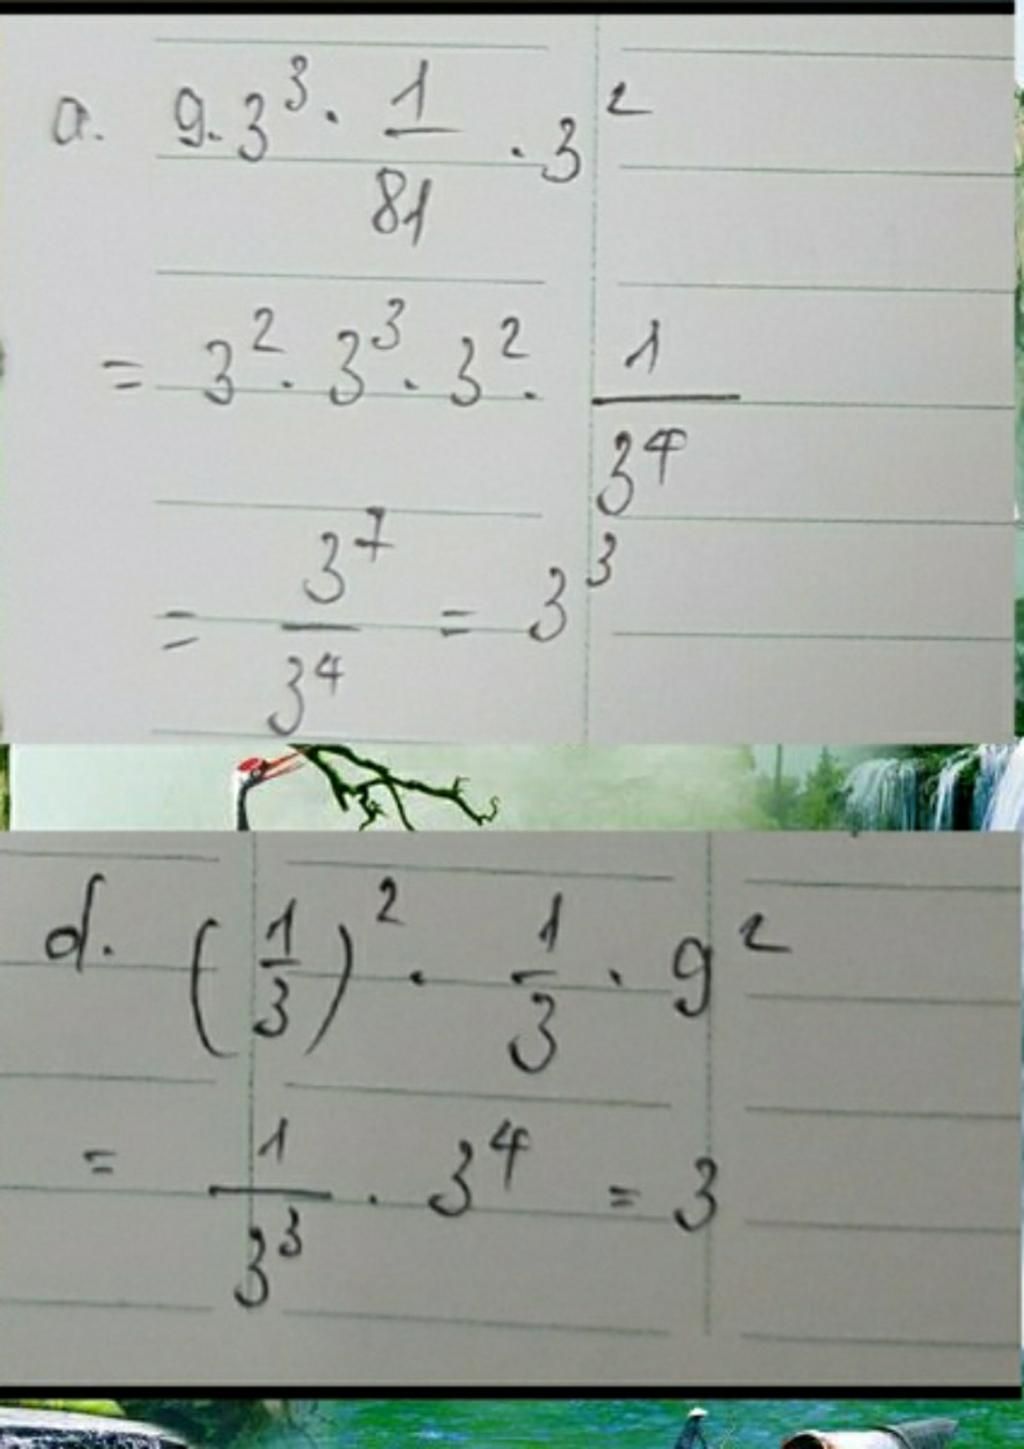 a. 9.3³ . 1/81 . 3²
= 3² . 3³ . 3² . 1/3⁴
= 3⁷/3⁴ = 3³
d. (1/3)² . 1/3 . 9²
= 1/3³ . 3⁴ = 3